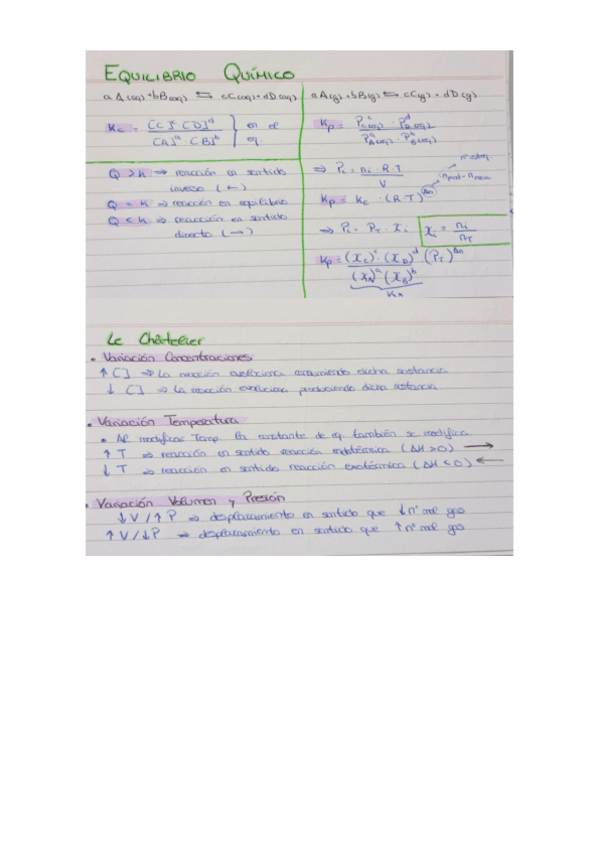 EQUILIBRIO QUÍMICO
aA(aq) + bB(aq) ⇆ cC(aq) + dD(aq)
Kc = [C]^c · [D]^d / [A]^a · [B]^b } en el eq.
Q > K ⇒ reacción en sentido
inverso (←)
Q = K ⇒ reacción en equilibrio
Q < K ⇒ reacción en sentido
directo (→)
aA(g) + bB(g) ⇆ cC(g) + dD(g)
Kp = P_C(eq)^c · P_D(eq)^d / P_A(eq)^a · P_B(eq)^b
⇒ Pi = ni · R · T / V
Kp = Kc · (R·T)^Δn
⇒ Pi = PT · Xi
Xi = ni / nT
Kp = (Xc)^c · (XD)^d / (XA)^a · (XB)^b · (PT)^Δn
Le Châtelier
• Variación Concentraciones
↑ [ ] ⇒ La reacción evoluciona consumiendo dicha sustancia
↓ [ ] ⇒ La reacción evoluciona produciendo dicha sustancia
• Variación Temperatura
• Al modificar Temp. la constante de eq también se modifica
↑ T ⇒ reacción en sentido reacción endotérmica (ΔH > 0) →
↓ T ⇒ reacción en sentido reacción exotérmica (ΔH < 0) ←
• Variación Volumen y Presión
↓ V / ↑ P ⇒ desplazamiento en sentido que ↓ nº mol gas
↑ V / ↓ P ⇒ desplazamiento en sentido que ↑ nº mol gas